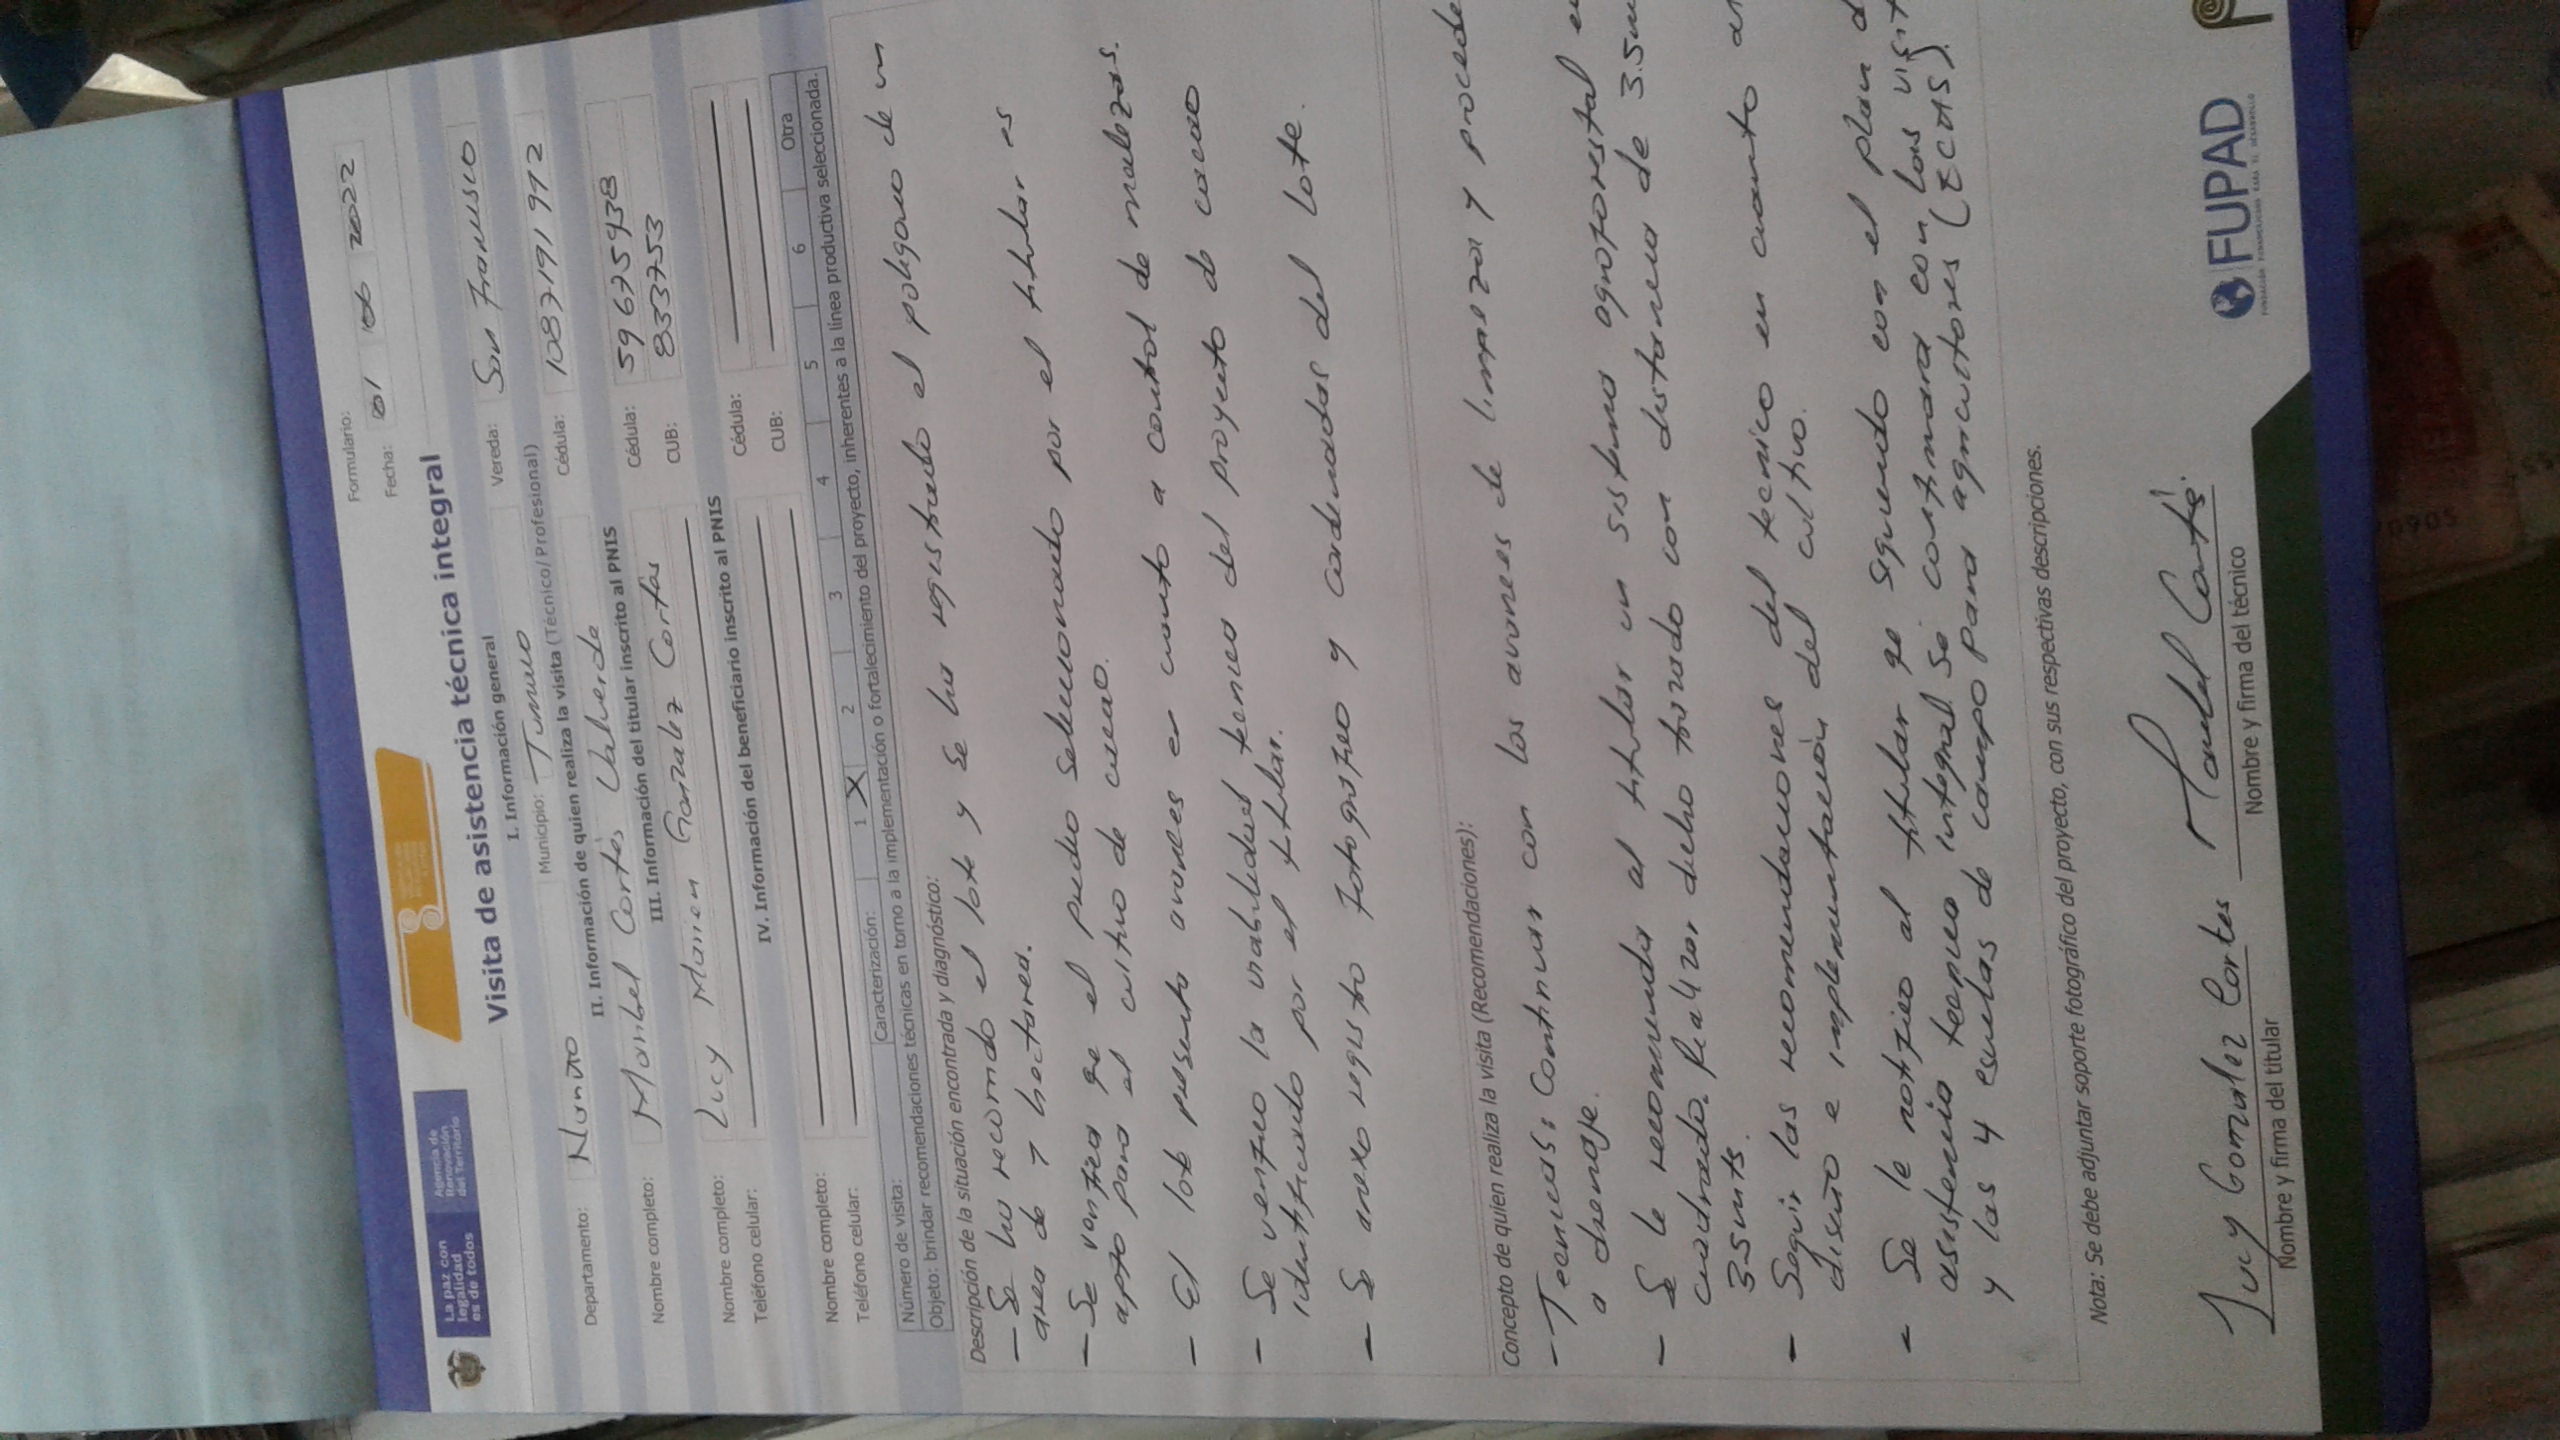 La paz con
legalidad
es de todos
Agencia de
Renovación
del Territorio
Formulario:
Fecha: 01 06 2022
Visita de asistencia técnica integral
I. Información general
Departamento: Nariño Municipio: Tumaco Vereda: San Francisco
II. Información de quien realiza la visita (Técnico/Profesional)
Nombre completo: Maribel Cortés Valverde Cédula: 1087191992
III. Información del titular inscrito al PNIS
Nombre completo: Lucy Marien Gonzalez Cortés Cédula: 59675938
Teléfono celular: CUB: 8333753
IV. Información del beneficiario inscrito al PNIS
Nombre completo: Cédula:
Teléfono celular: CUB:
Número de visita: Caracterización: 1 X 2 3 4 5 6 Otra
Objeto: brindar recomendaciones técnicas en torno a la implementación o fortalecimiento del proyecto, inherentes a la línea productiva seleccionada.
Descripción de la situación encontrada y diagnóstico:
- Se ha recorrido el lote y se ha registrado el poligono de un
area de 1 hectarea.
- Se verifica qe el predio seleccionado por el titular es
apto para el cultivo de cacao.
- El lote presenta avances en cuanto a control de malezas.
- Se verifico la viabilidad tecnica del proyecto de cacao
identificado por el titular.
- Se anexo registro fotografico y cordenadas del lote.
Concepto de quien realiza la visita (Recomendaciones):
- Tecnicas: Continuar con los avances de limpieza y procede
a drenaje.
- Se le recomienda al titular un sistema agroforestal en
cuadrado. Realizar dicho trazado con distancia de 3.5m
3.5mts.
- Seguir las recomendaciones del tecnico en cuanto al
diseño e implementación del cultivo.
- Se le notifico al titular qe siguiendo con el plan d
asistencia tecnica integral se continuara con las visit
y las 4 escuelas de campo para agricultores (ECAS).
Nota: Se debe adjuntar soporte fotográfico del proyecto, con sus respectivas descripciones.
Lucy Gonzalez Cortes Maribel Cortés
Nombre y firma del titular Nombre y firma del técnico
FUPAD